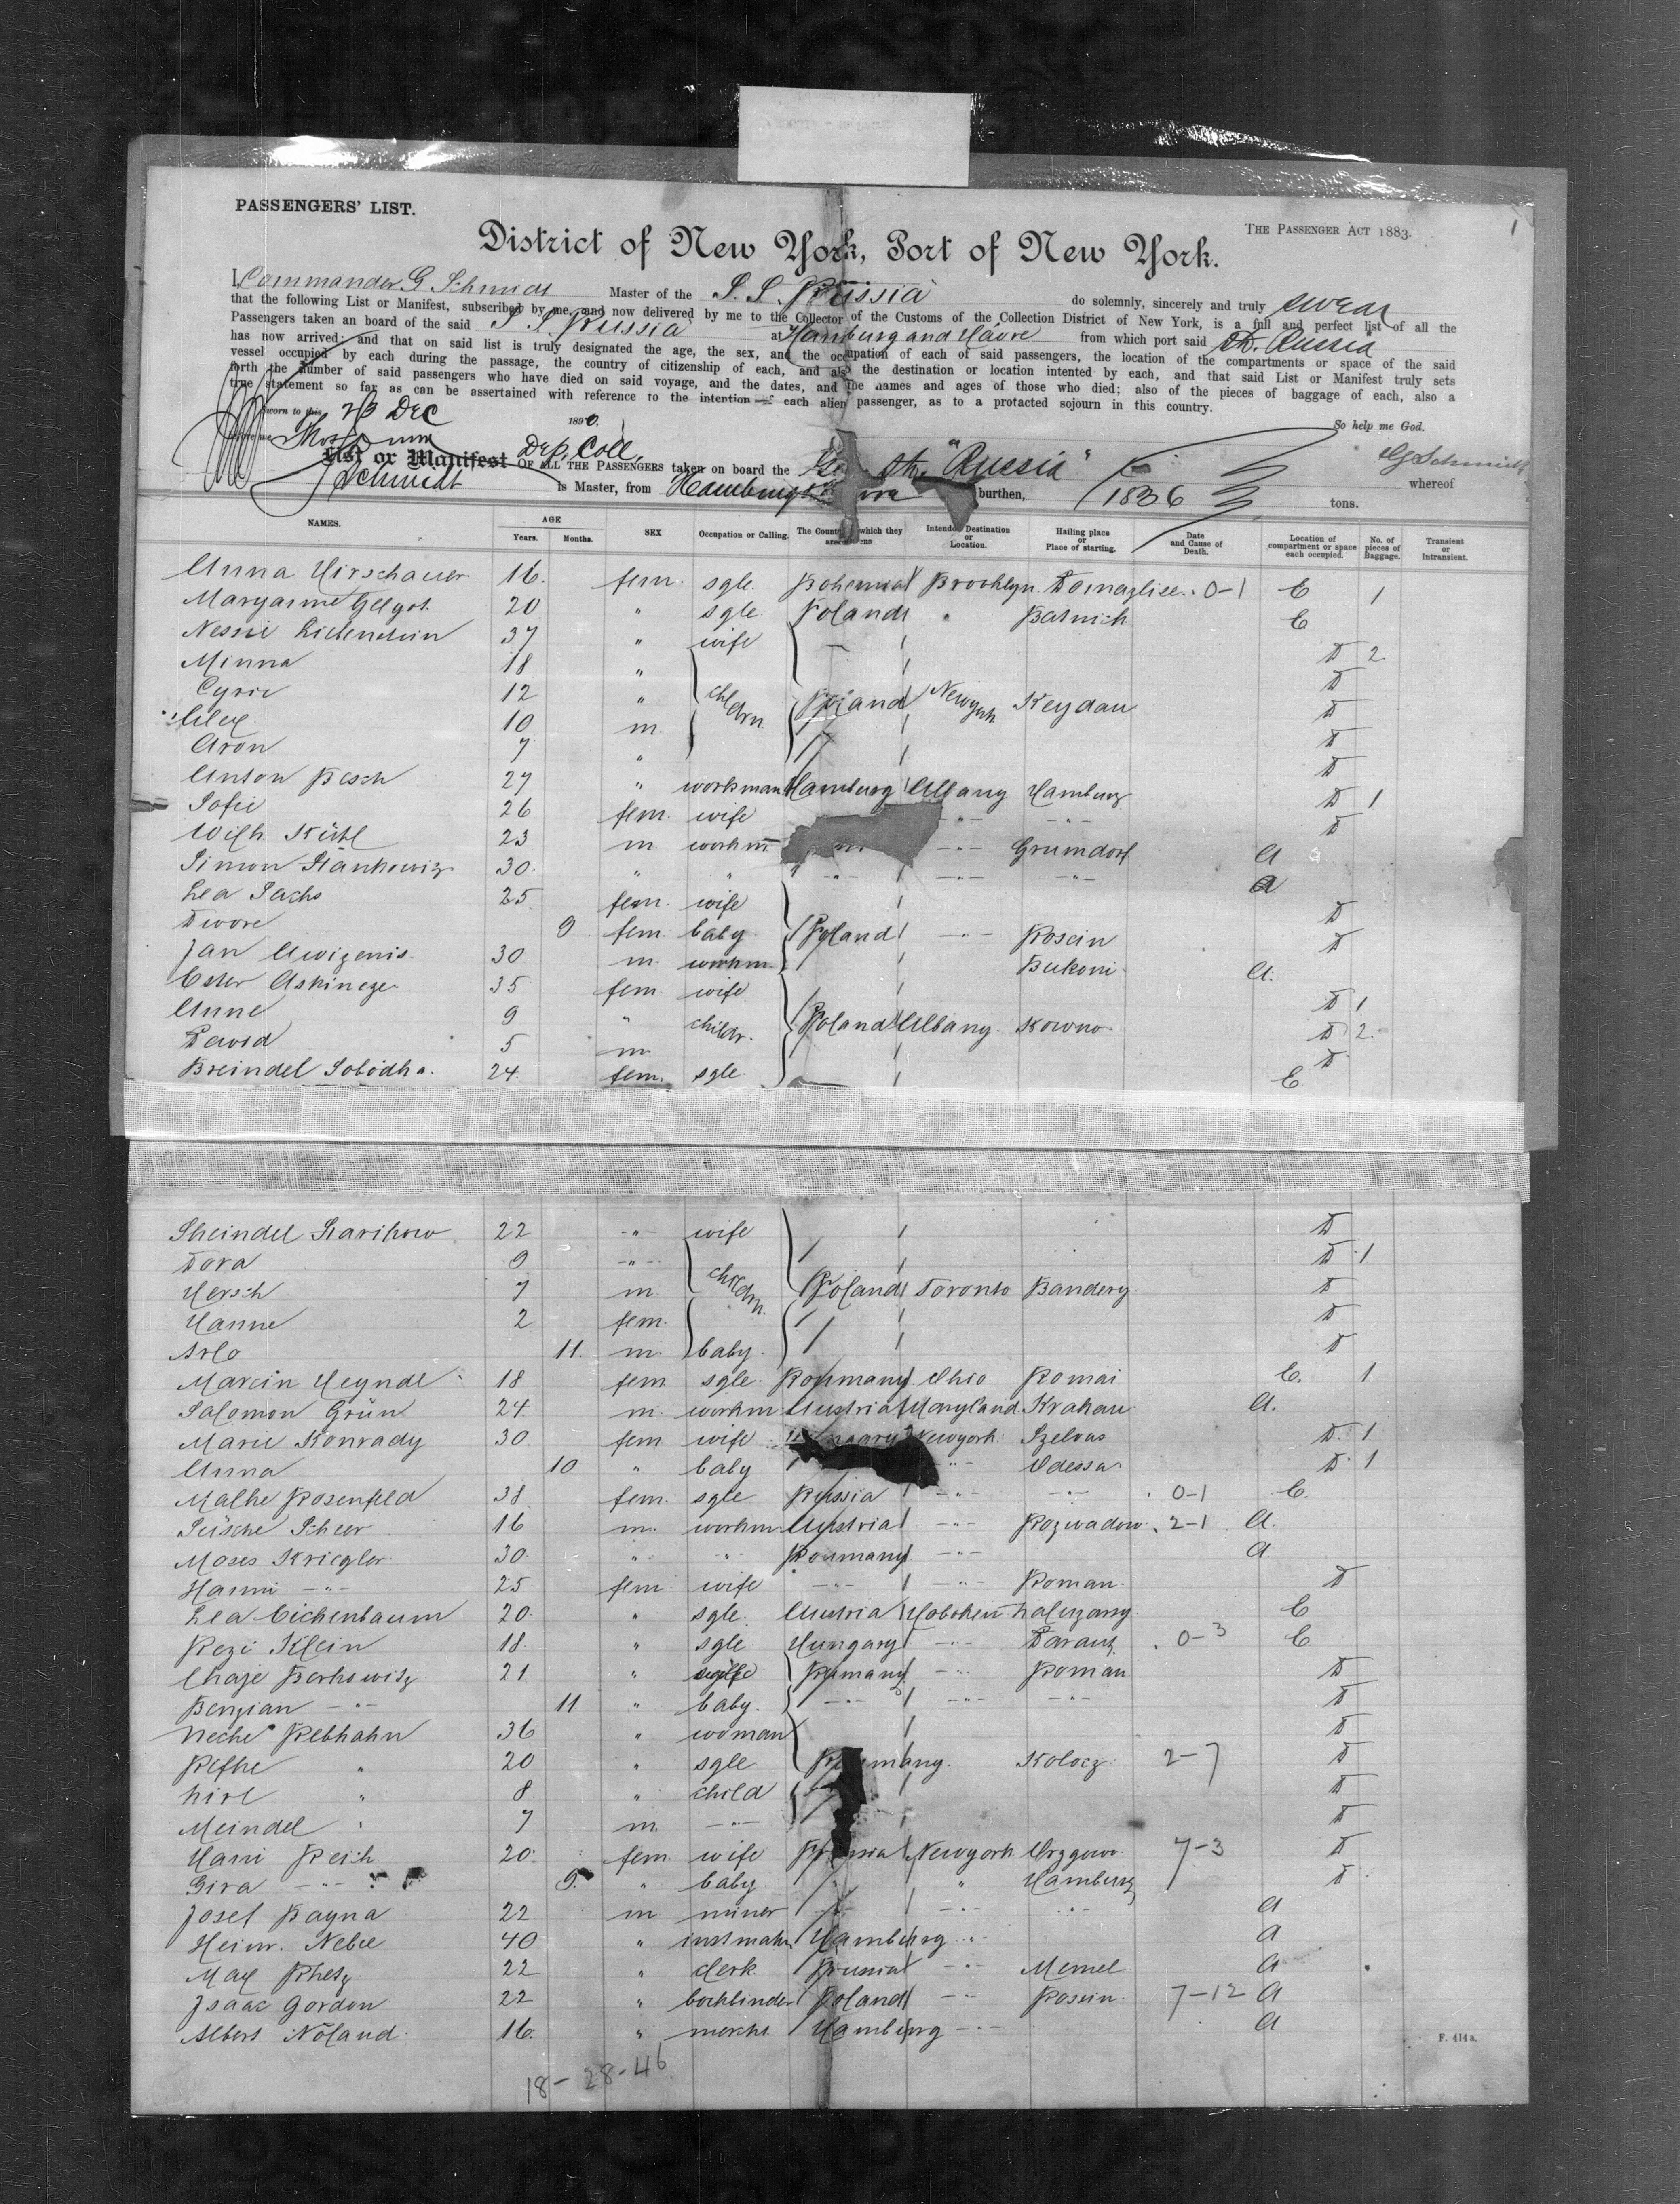 PASSENGERS' LIST.
THE PASSENGER ACT 1883.
1
District of New York, Port of New York.
I, Commander G Schmidt Master of the S. S. Russia do solemnly, sincerely and truly swear
that the following List or Manifest, subscribed by me, and now delivered by me to the Collector of the Customs of the Collection District of New York, is a full and perfect list of all the
Passengers taken an board of the said S S Russia at Hamburg and Havre from which port said St. Russia
has now arrived; and that on said list is truly designated the age, the sex, and the occupation of each of said passengers, the location of the compartments or space of the said
vessel occupied by each during the passage, the country of citizenship of each, and also the destination or location intented by each, and that said List or Manifest truly sets
forth the number of said passengers who have died on said voyage, and the dates, and the names and ages of those who died; also of the pieces of baggage of each, also a
true statement so far as can be assertained with reference to the intention of each alien passenger, as to a protacted sojourn in this country.
Sworn to this 23 Dec 1890.
So help me God.
Dep. Coll.
G Schmidt
List or Manifest OF ALL THE PASSENGERS taken on board the St. "Russia" whereof
Schmidt is Master, from Hamburg burthen, 1836 tons.
NAMES. AGE Years. Months. SEX Occupation or Calling. The Country of which they are citizens Intended Destination or Location. Hailing place or Place of starting. Date and Cause of Death. Location of compartment or space each occupied. No. of pieces of Baggage. Transient or Intransient.
Anna Hirschauer 16. fem. sgle. Bohemia Brooklyn Domazlice. 0-1 E 1
Maryanne Gelgot 20 " sgle Poland " Batnich E
Nessi Lichenstein 37 " wife D 2
Minna 18 " D
Cyrie 12 " childrn. Poland Newyork Keydau D
Alex 10 m. D
Aron 7 " D
Anton Pesch 27 " workman Hamburg Albany Hamburg D 1
Sofie 26 fem. wife -"- -"- D
Wilh. Kühl 23 m workm -"- Grumdorf A
Simon Stankowiz 30. " " -"- -"- -"- A
Lea Sachs 25 fem. wife D
Dwore 9 fem. baby Poland -"- Rosein D
Jan Awizenis 30 m. workm. Bukoni A.
Ester Askineze 35 fem wife D 1
Anne 9 " childr. Poland Albany. Kowno D 2.
Dawid 5 m. D
Breindel Sobodka. 24. fem. sgle. E
Sheindel Starikow 22 -"- wife D
Dora 9 -"- D 1
Hersch 7 m childrn. Poland Toronto Bandery D
Hanne 2 fem. D
Arlo 11. m. baby. D
Marcin Heyndl 18 fem sgle. Roumany Ohio Romai E. 1
Salomon Grün 24 m. workm. Austria Maryland Krakau A.
Marie Konrady 30 fem wife Newyork Szelvas D. 1
Anna 10 " baby -"- Odessa D. 1
Malke Rosenfeld 38 fem. sgle Russia -"- -"- 0-1 E.
Süsche Scheer 16 m. workm Austria -"- Rozwadow. 2-1 A.
Moses Kriegler 30. " -"- Roumany -"- A.
Hanni -"- 25 fem wife -"- -"- Roman. D
Lea Eichenbaum 20. " sgle. Austria Hoboken E
Rezi Klein 18. " sgle Hungary -"- Barantz 0-3 E
Chaje Berkowitz 21 " wife Rumany -"- Roman D
Benzian -"- 11 " baby. -"- -"- -"- D
Neche Rebhahn 36 " woman D
Rifke " 20 " sgle Roumany. Kolocz 2-7 D
Hirl " 8 " child D
Meindel " 7 m -"- D
Hani Reich 20. fem. wife Newyork D 7-3
Gira -"- 9. " baby " Hamburg D
Josef Bayna 22 m miner -"- -"- -"- A
Heinr. Nebel 40 " Hamburg -"- A
Max Rhetz 22 " clerk Prussia -"- Memel A
Isaac Gordon 22 " bochbinder Poland -"- Rossin. 7-12 A
Albert Noland 16. " mercht. Hamburg -"- A
F. 414 a.
18- 28-46